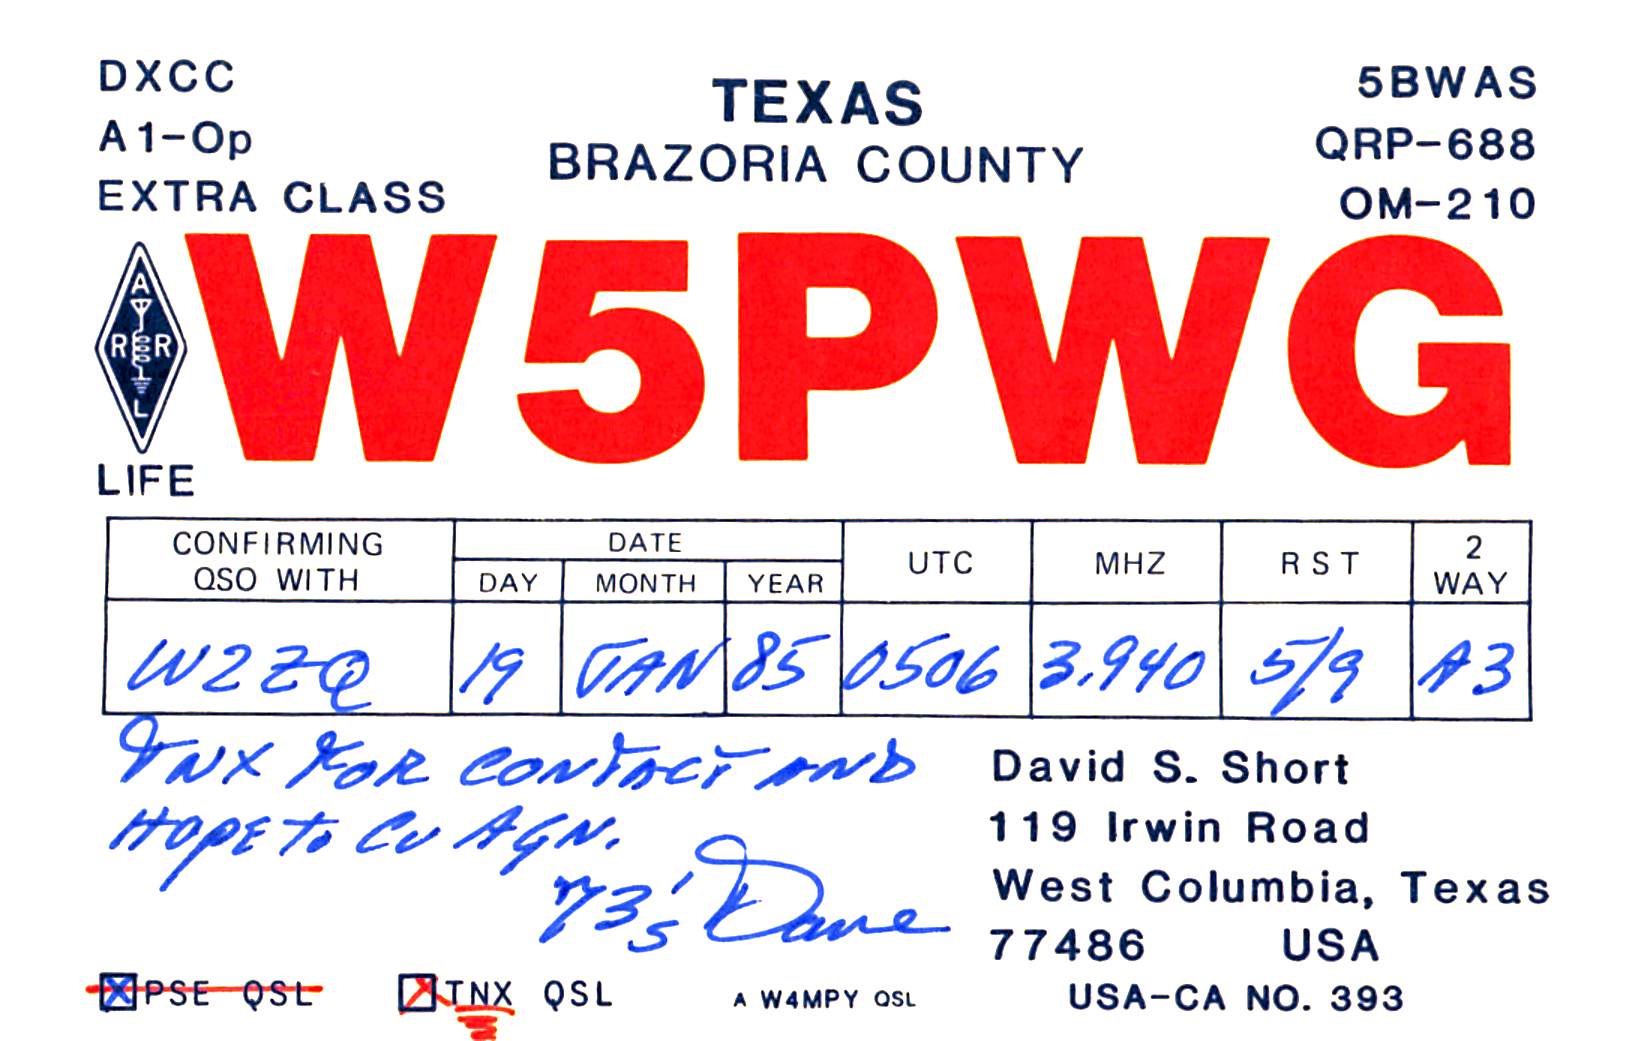 DXCC
A1-Op
EXTRA CLASS
TEXAS
BRAZORIA COUNTY
5BWAS
QRP-688
OM-210
ARRL
LIFE
W5PWG
CONFIRMING QSO WITH
DATE
DAY MONTH YEAR
UTC
MHZ
RST
2 WAY
W2ZQ 19 JAN 85 0506 3.940 5/9 A3
TNX FOR CONTACT AND
HOPE TO CU AGN.
73's Dave
David S. Short
119 Irwin Road
West Columbia, Texas
77486 USA
USA-CA NO. 393
PSE QSL
TNX QSL
A W4MPY QSL